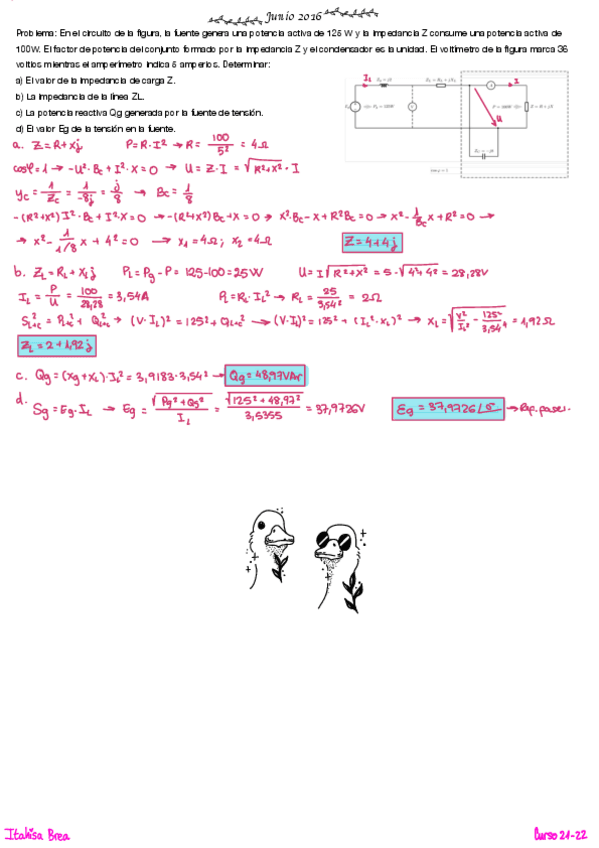 Junio 2016
Problema: En el circuito de la figura, la fuente genera una potencia activa de 125 W y la impedancia Z consume una potencia activa de
100W. El factor de potencia del conjunto formado por la impedancia Z y el condensador es la unidad. El voltímetro de la figura marca 36
voltios mientras el amperímetro indica 5 amperios. Determinar:
a) El valor de la impedancia de carga Z.
b) La impedancia de la línea ZL.
c) La potencia reactiva Qg generada por la fuente de tensión.
d) El valor Eg de la tensión en la fuente.
a. Z = R + Xj P = R·I² → R = 100/5² = 4Ω
cosφ = 1 → -U²·Bc + I²·X = 0 → U = Z·I = √(R²+X²)·I
Yc = 1/Zc = 1/-8j = j/8 → Bc = 1/8
-(R²+X²)I²·Bc + I²·X = 0 → -(R²+X²)Bc + X = 0 → X²·Bc - X + R²Bc = 0 → X² - 1/Bc X + R² = 0 →
→ X² - 1/1/8 X + 4² = 0 → X₁ = 4Ω; X₂ = 4Ω Z = 4+4j
b. ZL = RL + XLj PL = Pg - P = 125-100 = 25W U = I√(R²+X²) = 5·√(4²+4²) = 28,28V
IL = P/U = 100/28,28 = 3,54A PL = RL·IL² → RL = 25/3,54² = 2Ω
S²L+c = P²L+c + Q²L+c → (V·IL)² = 125² + Q²L+c → (V·IL)² = 125² + (IL²·XL)² → XL = √(V²/IL² - 125²/3,54⁴) = 1,92Ω
ZL = 2 + 1,92j
c. Qg = (Xg+XL)·IL² = 3,9183·3,54² → Qg = 48,97VAr
d. Sg = Eg·IL → Eg = √(Pg²+Qg²)/IL = √(125²+48,97²)/3,5355 = 37,9726V Eg = 37,9726
Itahisa Brea
Curso 21-22